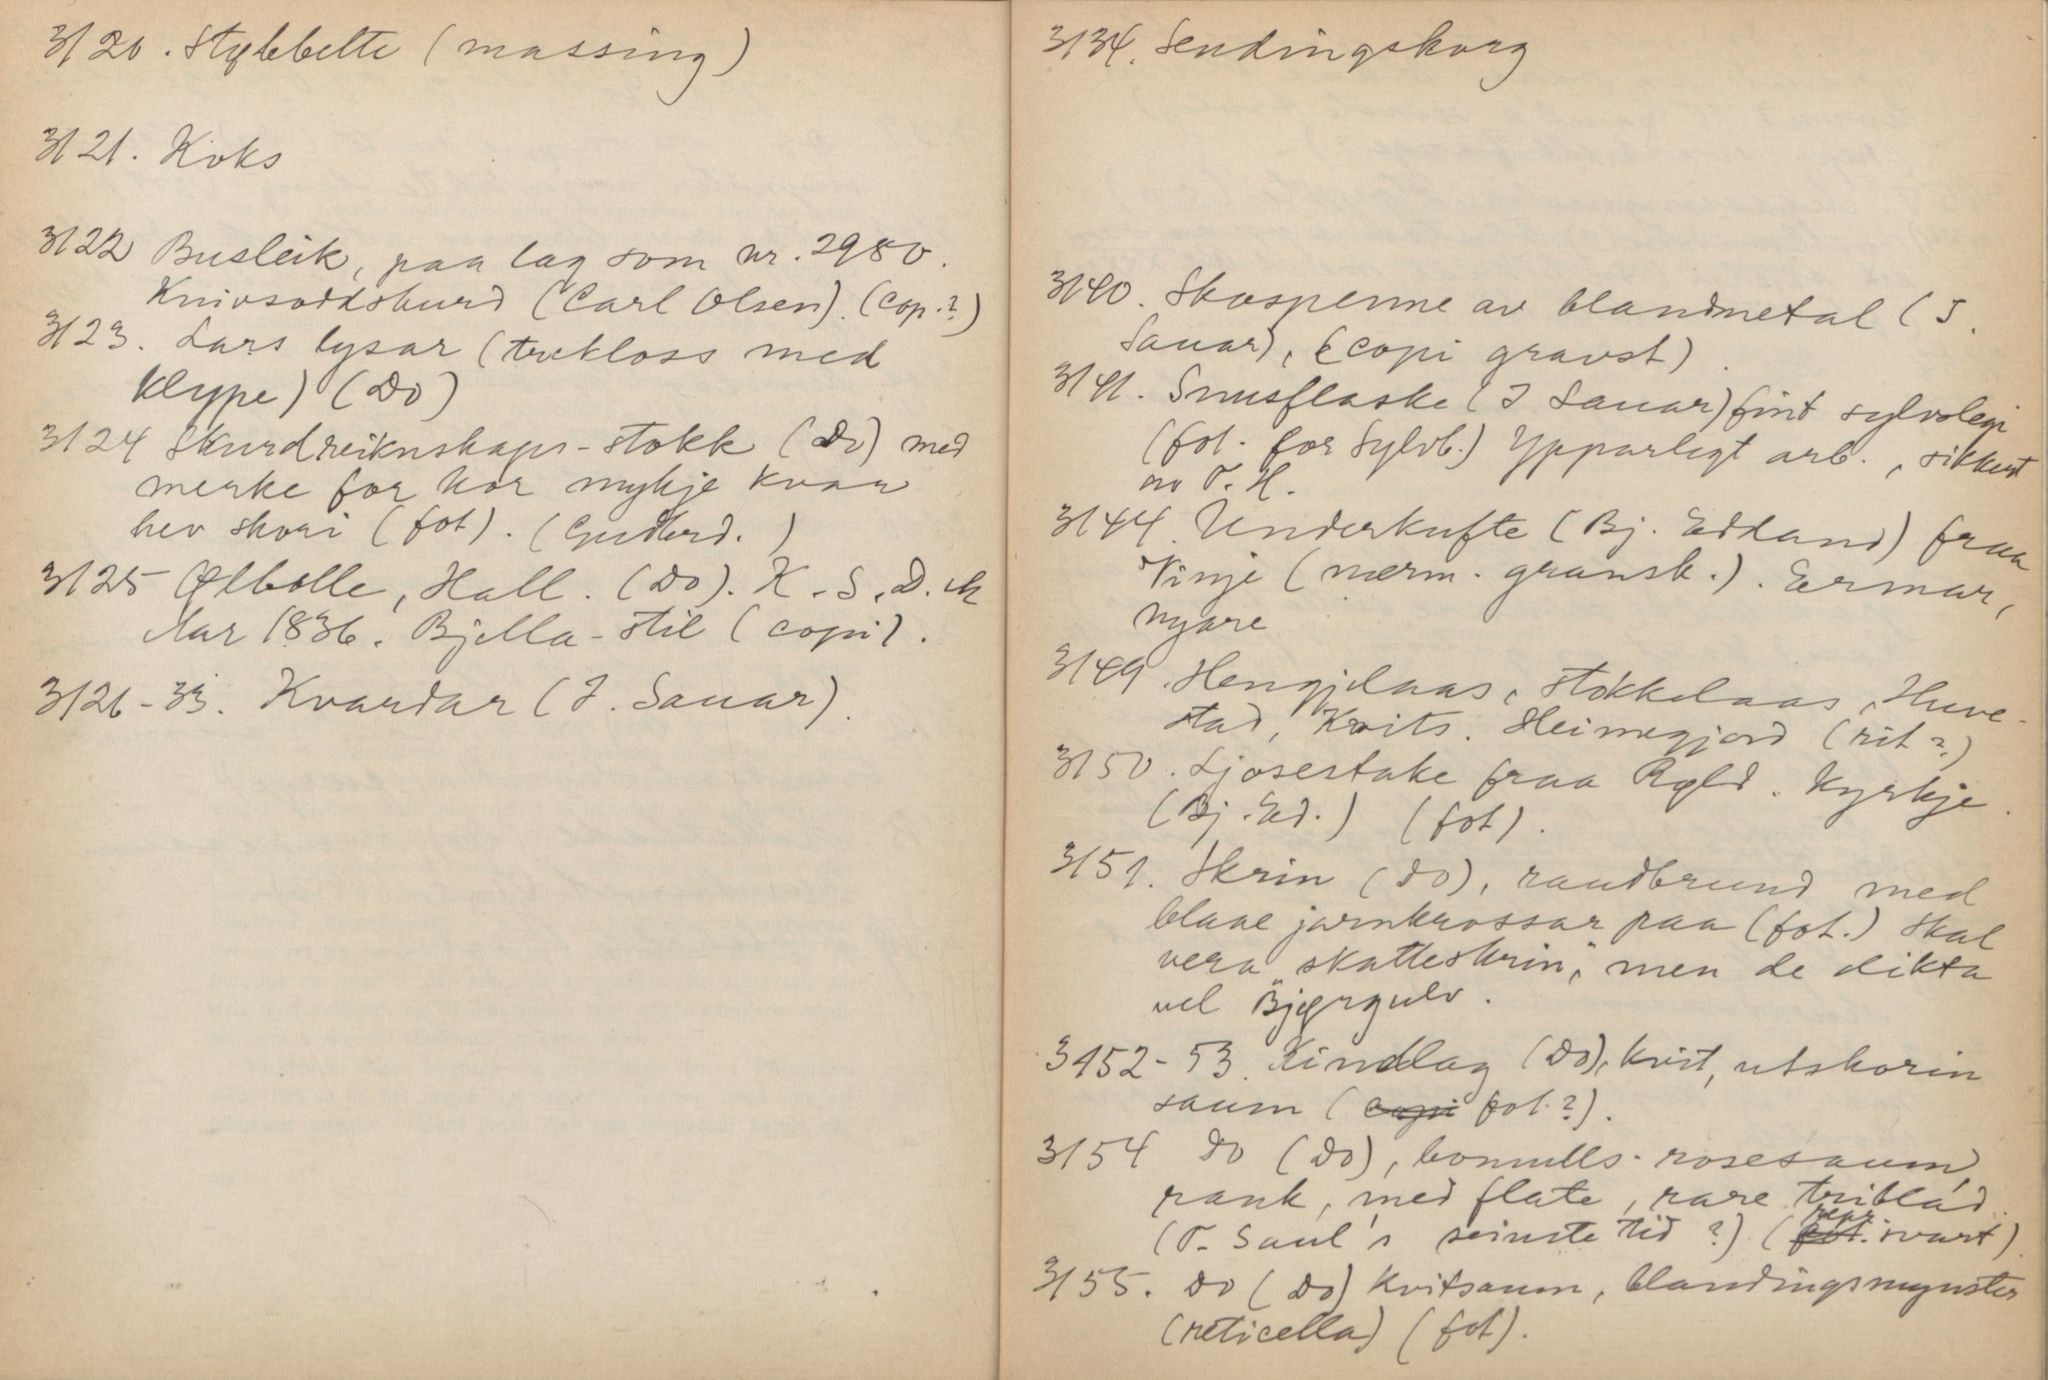 3120. Stybbelte (massing)
3121. Koks
3122 Busleik, paa lag som nr. 2980.
Knivsoddskurd (Carl Olsen). (cop.?)
3123. Lars lysar (trekloss med
klype) (Do)
3124 Skurdreiknskaps-stokk (Do) med
merke for kor mykje kvar
hev skori (fot). (Gudbrd.)
3125 Ølbolle, Hall. (Do). K. S. D.
Aar 1836. Bjella-stil (copi).
3126-33. Kvardar (J. Sauar).
3134. Sendingskorg
3140. Skospenne av blandmetal (J.
Sauar), (copi gravst)
3141. Snusflaske (J Sauar) fint sylvslegi
(fot. for Sylvb.) Ypparlegt arb., sikkert
av T. H.
3144. Underkufte (Bj. Edland) fraa
Vinje (nærm. gransk.). Ermar,
nyare
3149. Hengjelaas, stokkelaas, Huve-
stad, Kvits. Heimegjord (rit?)
3150. Ljosestake fraa Rqld. Kyrkje.
(Bj. Ed.) (fot).
3151. Skrin (do), raudbrund med
blaae jarnkrossar paa (fot.) Skal
vera "skatteskrin", men de dikta
vel Bjørgulv.
3152-53. Kindlag (Do), kvit, utskorin
saum (copi fot.?).
3154 Do (Do), bomulls-rosesaum,
rank, med flate, rare triblad.
(T. Saul's seinste tid?) (fot. svart).
3155. Do (Do) Kvitsaum, blandingsmynster
(reticella) (fot).